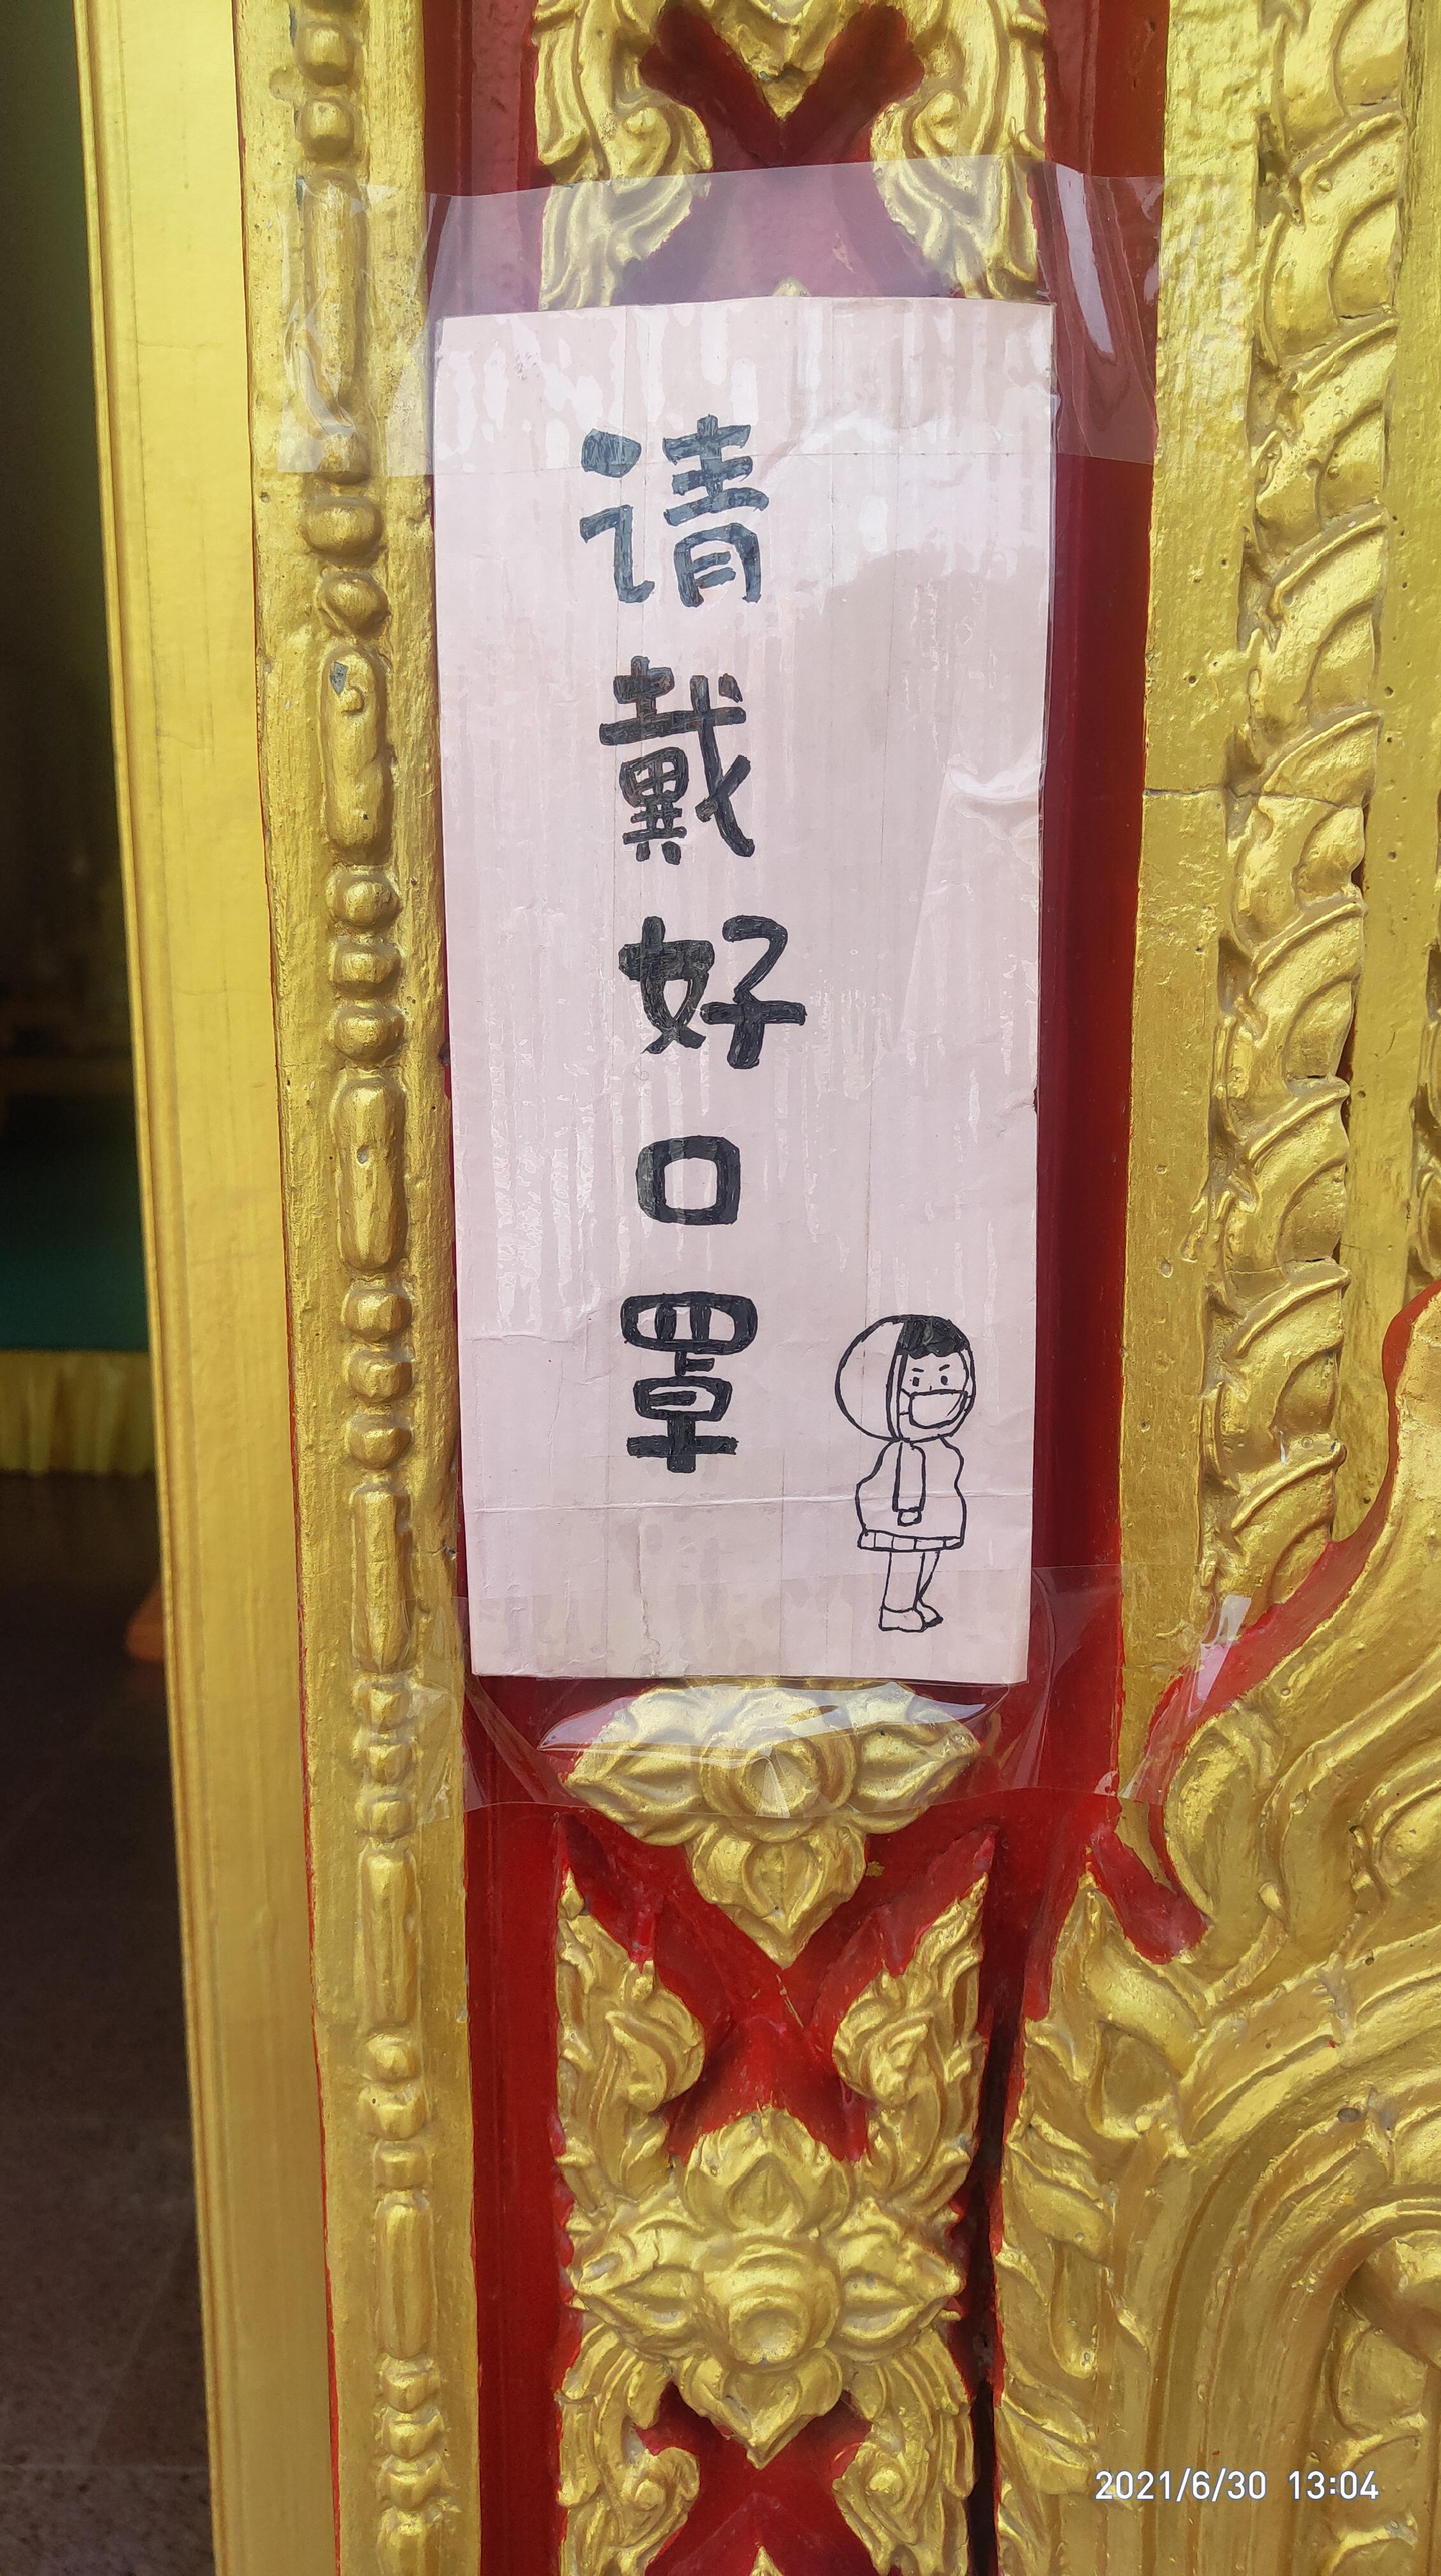 请戴好口罩
2021/6/30 13:04